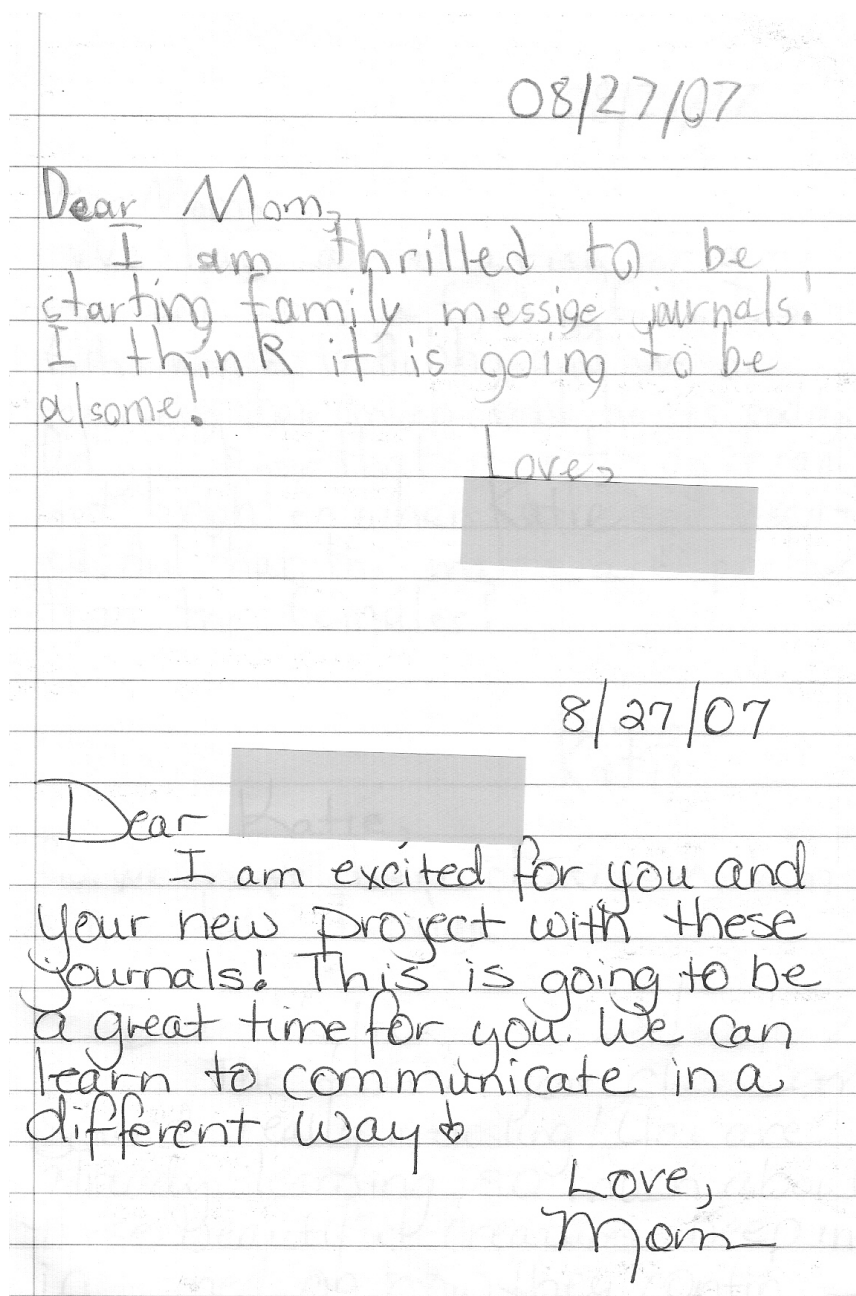 08/27/07
Dear Mom,
I am thrilled to be
starting family messige journals!
I think it is going to be
alsome!
Love,
8/27/07
Dear
I am excited for you and
your new project with these
journals! This is going to be
a great time for you. We can
learn to communicate in a
different way
Love,
Mom